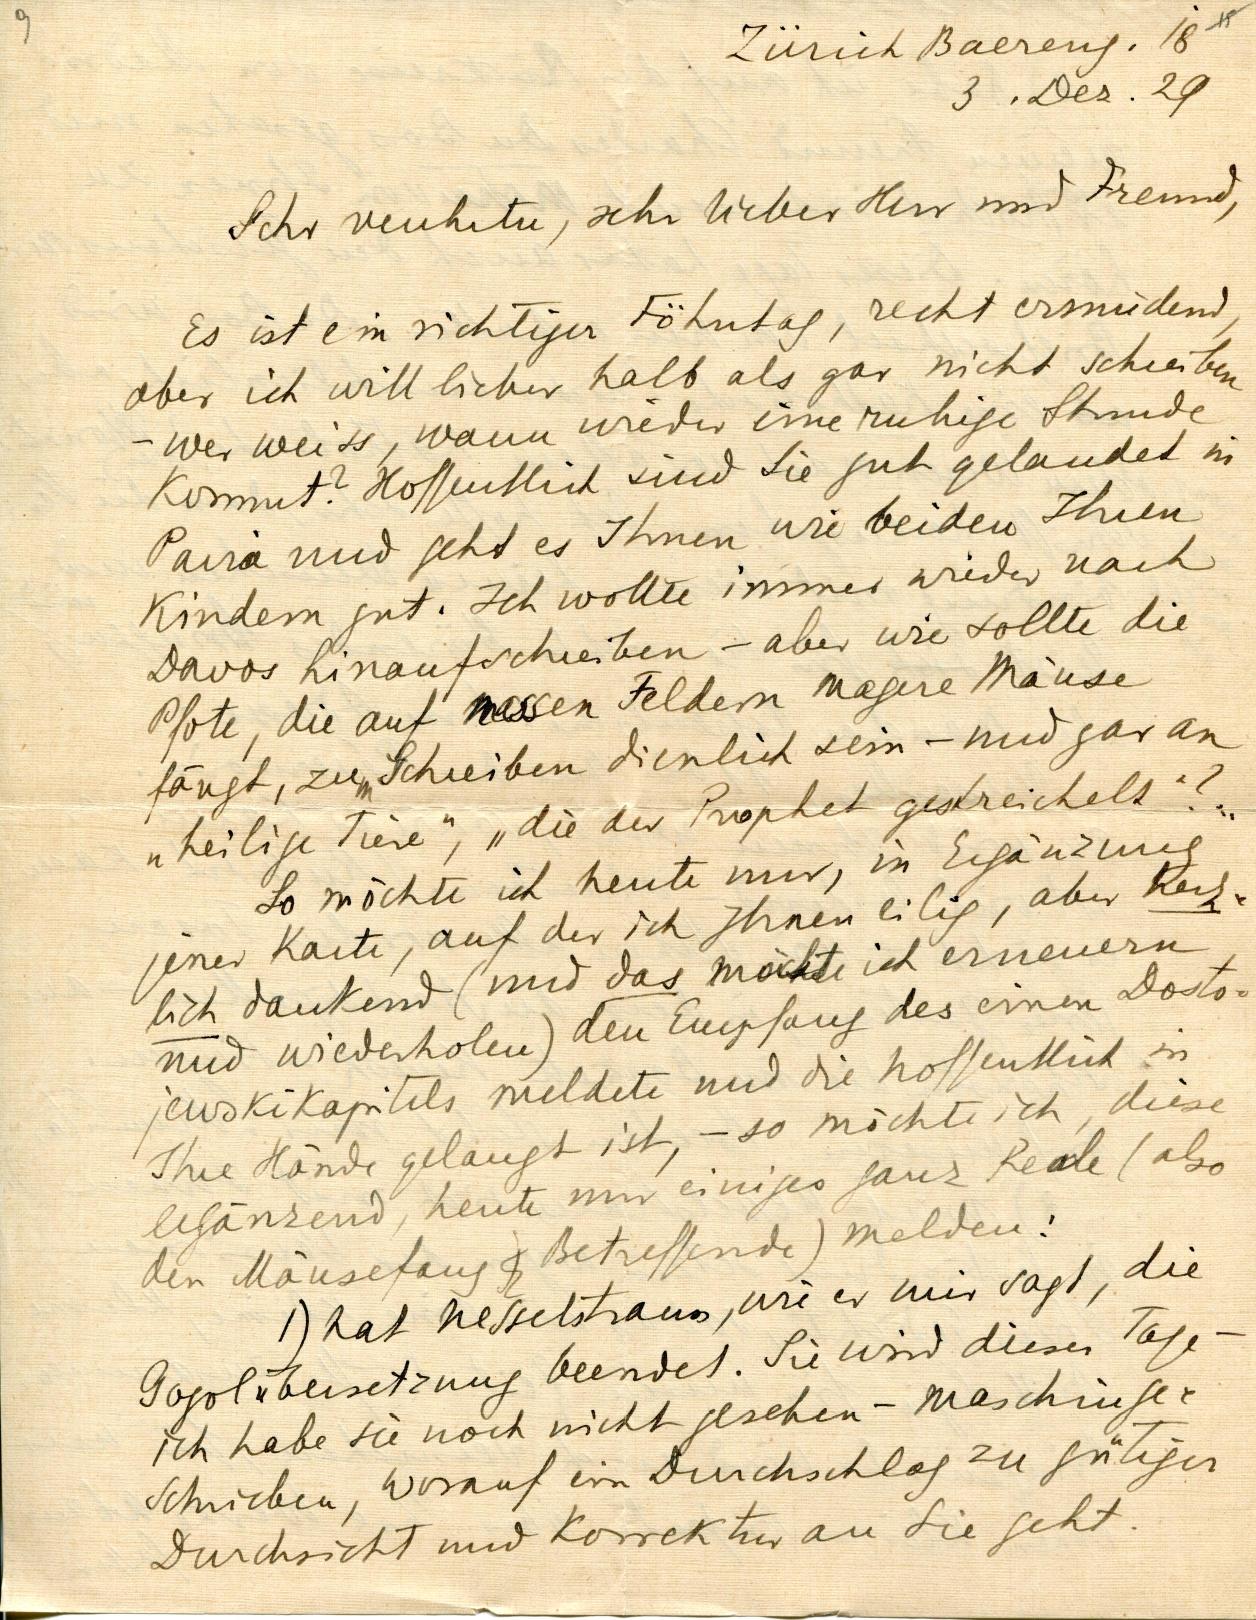 9
Zürich Baereng. 18
3. Dez. 29
Sehr verehrter, sehr lieber Herr und Freund,
Es ist ein richtiger Föhntag, recht ermüdend,
aber ich will lieber halb als gar nicht schreiben
- wer weiss, wann wieder eine ruhige Stunde
kommt? Hoffentlich sind Sie gut gelandet in
und geht es Ihnen wie beiden Ihren
Kindern gut. Ich wollte immer wieder nach
Davos hinaufschreiben - aber wie sollte die
Pfote, die auf nassen Feldern magere Mäuse
fängt, zum Schreiben dienlich sein - und gar an
„heilige Tiere", „die der Prophet gestreichelt"?..
So möchte ich heute nur, in Ergänzung
jener Karte, auf der ich Ihnen eilig, aber herz-
lich dankend (und das möchte ich erneuern
und wiederholen) den Empfang des einen Dosto-
jewskikapitels meldete und die hoffentlich in
Ihre Hände gelangt ist, - so möchte ich, diese
ergänzend, heute nur einiges ganz Reale (also
den Mäusefang Betreffende) melden:
1) hat Nesselstrauss, wie er mir sagt, die
Gogolübersetzung beendet. Sie wird dieser Tage -
ich habe sie noch nicht gesehen - maschinge-
schrieben, worauf ein Durchschlag zu gütiger
Durchsicht und Korrektur an Sie geht.